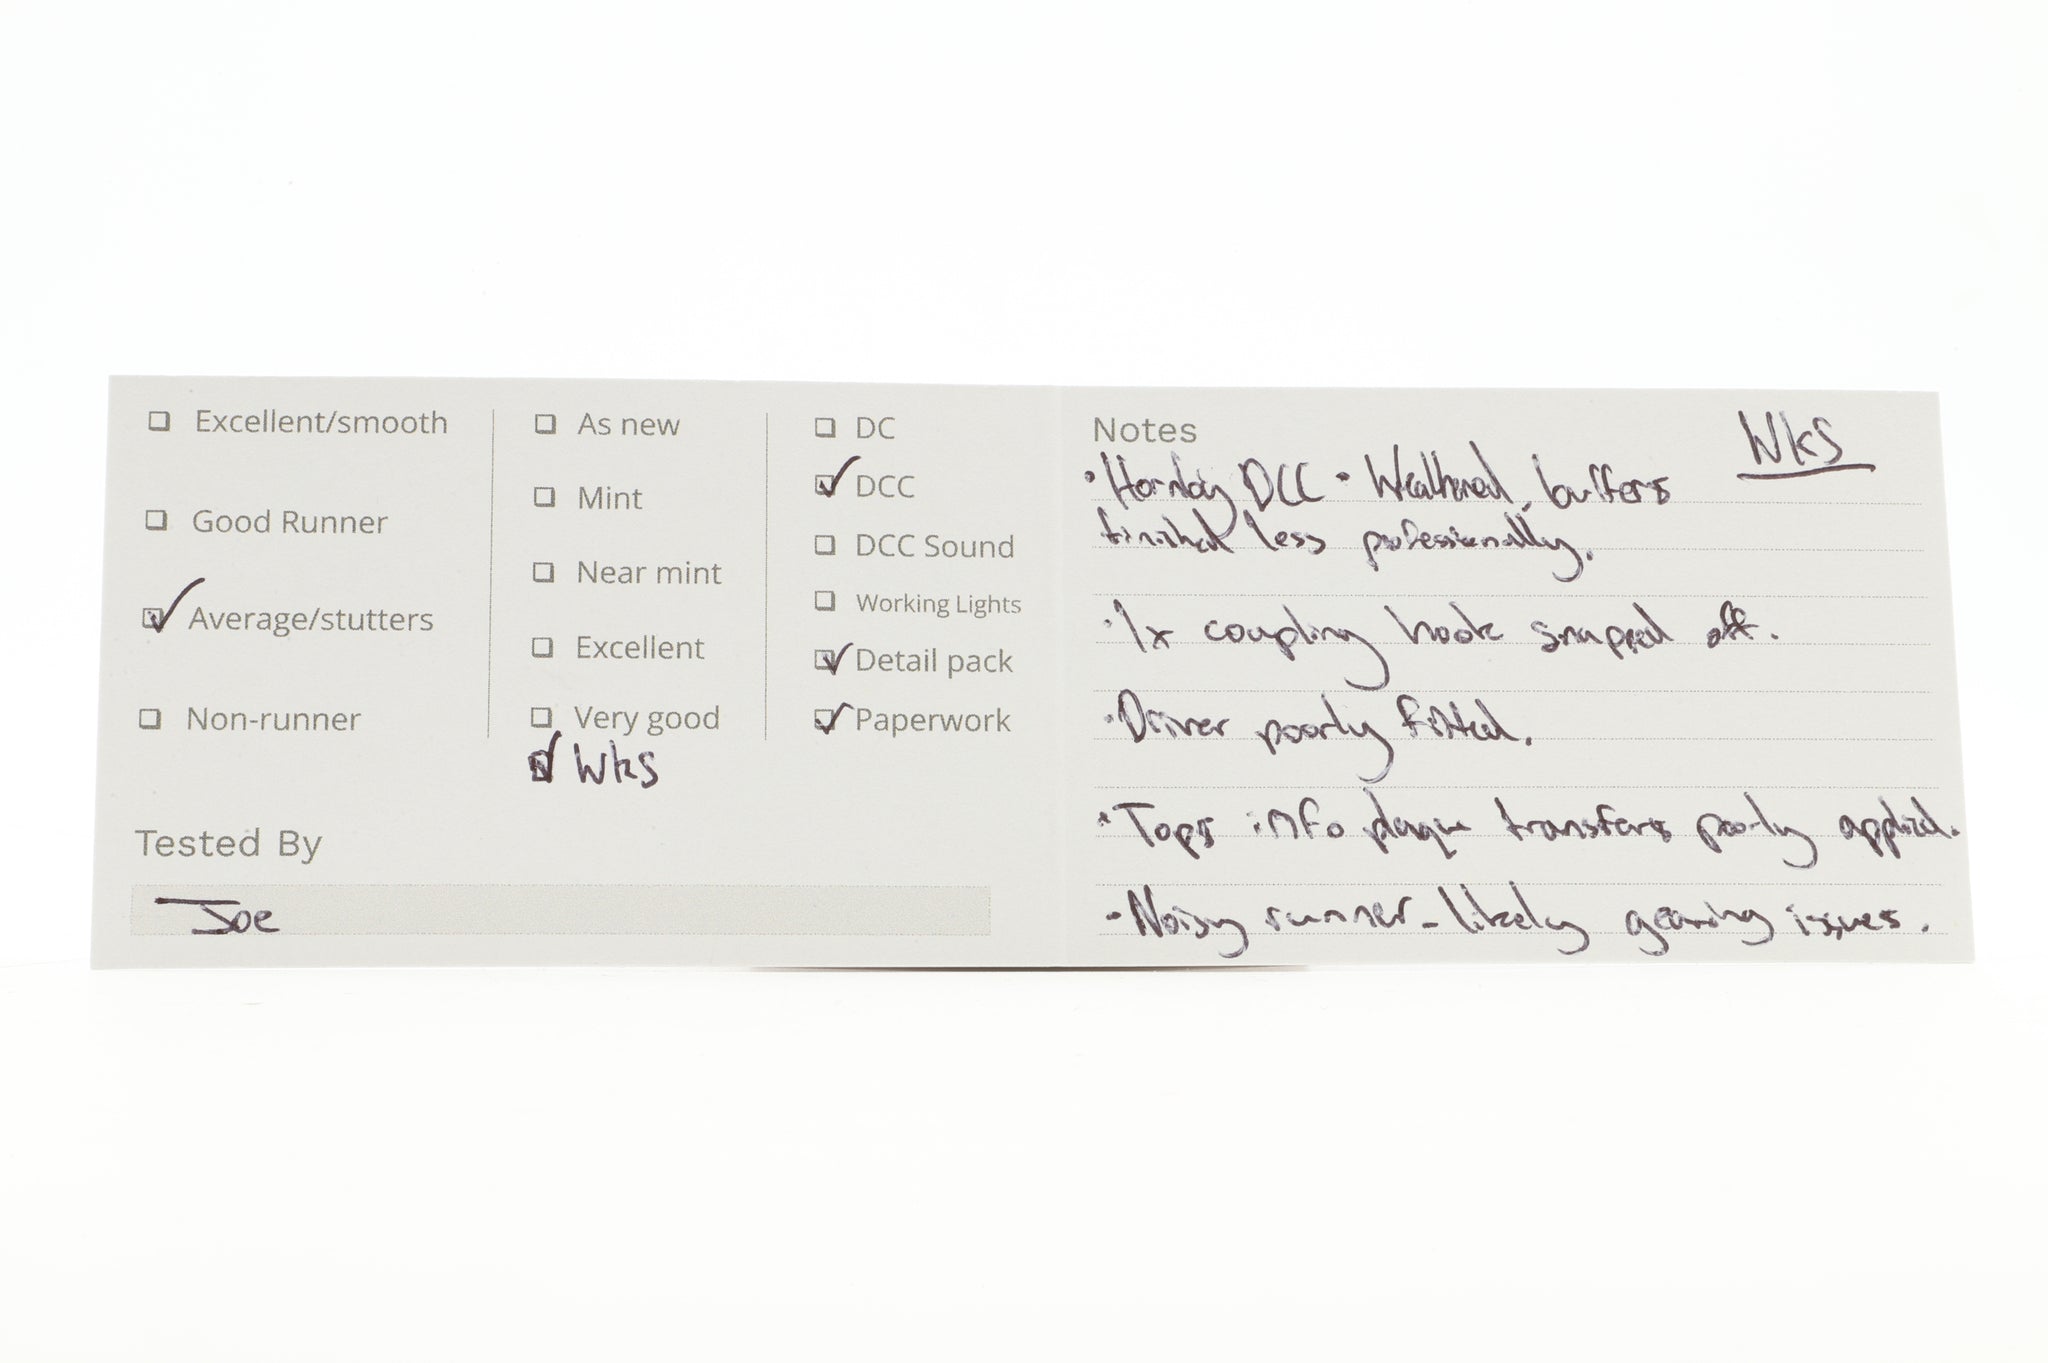 Excellent/smooth
Good Runner
Average/stutters
Non-runner
As new
Mint
Near mint
Excellent
Very good
Wks
DC
DCC
DCC Sound
Working Lights
Detail pack
Paperwork
Tested By
Joe
Notes
Wks
• Hornby DCC • Weathered, buffers
finished less professionally.
• 1x coupling hook snapped off.
• Driver poorly fitted.
• Tops info plaque transfers poorly applied.
- Noisy runner - likely gearing issues.